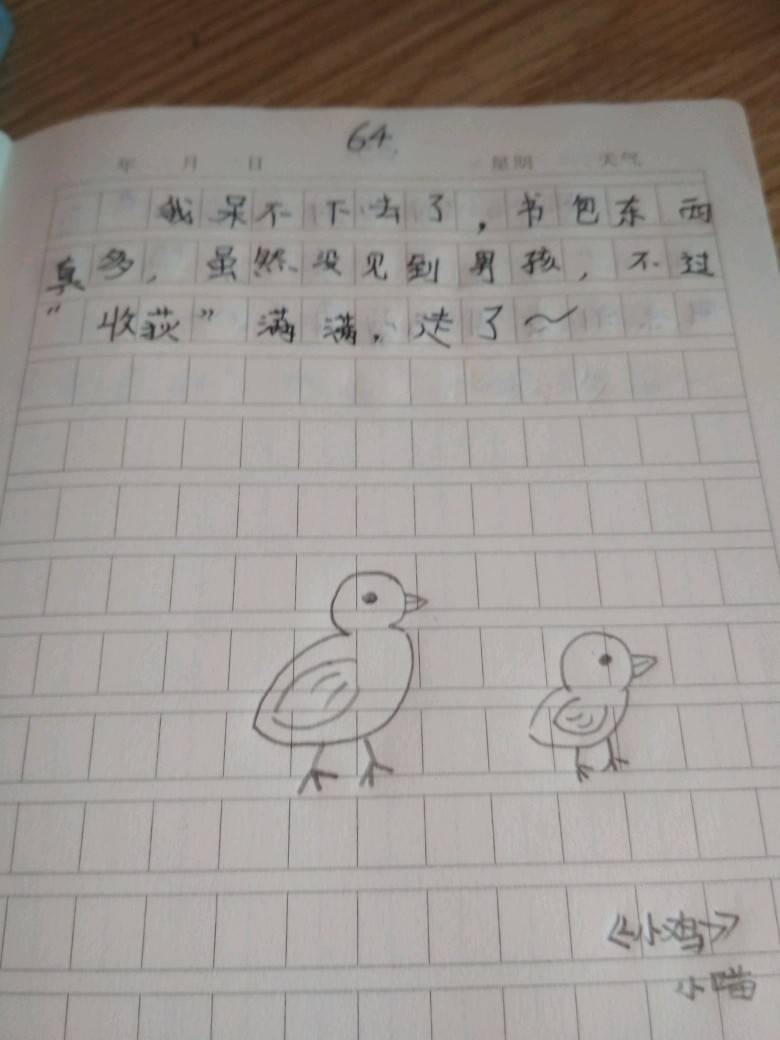 64
年 月 日 星期 天气
我呆不下去了，书包东西
真多，虽然没见到男孩，不过
“收获”满满，走了～
《小鸡》
小喵